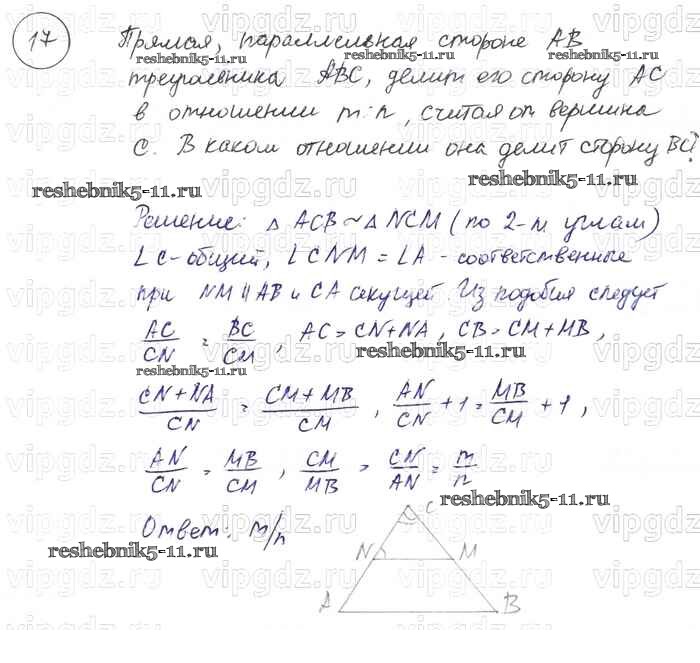 17
Прямая, параллельная стороне AB
треугольника ABC, делит его сторону AC
в отношении m:n, считая от вершина
C. В каком отношении она делит сторону BC?
Решение: △ ACB ~ △ NCM (по 2-м углам)
∠C - общий, ∠CNM = ∠A - соответственные
при NM ∥ AB и CA секущей. Из подобия следует
AC/CN = BC/CM, AC = CN+NA, CB = CM+MB,
(CN+NA)/CN = (CM+MB)/CM, AN/CN + 1 = MB/CM + 1,
AN/CN = MB/CM, CM/MB = CN/AN = m/n
Ответ: m/n
C
N M
A B
reshebnik5-11.ru
reshebnik5-11.ru
reshebnik5-11.ru
reshebnik5-11.ru
reshebnik5-11.ru
reshebnik5-11.ru
reshebnik5-11.ru
reshebnik5-11.ru
reshebnik5-11.ru
vipgdz.ru